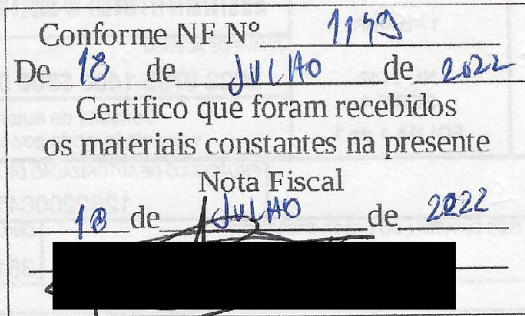 Conforme NF Nº 1149
De 18 de JULHO de 2022
Certifico que foram recebidos
os materiais constantes na presente
Nota Fiscal
18 de JULHO de 2022